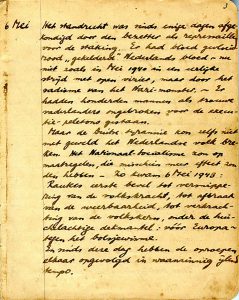 6 Mei
Het standrecht was sinds enige dagen afge-
kondigd door den bezetter als represaille
voor de staking. Er had bloed gevloeid
rood „gekleurd" Nederlands bloed – nu
niet zoals in Mei 1940 in een eerlijke
strijd met open vizier, maar door het
sadisme van het Nazi-monster. – Er
hadden honderden mannen als trouwe
vaderlanders opgetreden voor de execu-
tie-pelotons gestaan.
Maar de Duitse tyrannie kon zelfs niet
met geweld het Nederlandse volk bre-
ken. Het Nationaal-Socialisme zon op
maatregelen, die misschien meer effect zou-
den hebben – Zo kwam 6 Mei 1943:
Rauters eerste bevel tot versnippe-
ring van de volkskracht, tot afbraak
van de weerbaarheid, tot verkrach-
ting van de volkskern, onder de hui-
chelachtige dekmantel: vóór Europa –
tegen het bolsjewisme.
En sinds deze dag hebben de oproepen
elkaar opgevolgd in waanzinnig ijlend
tempo.